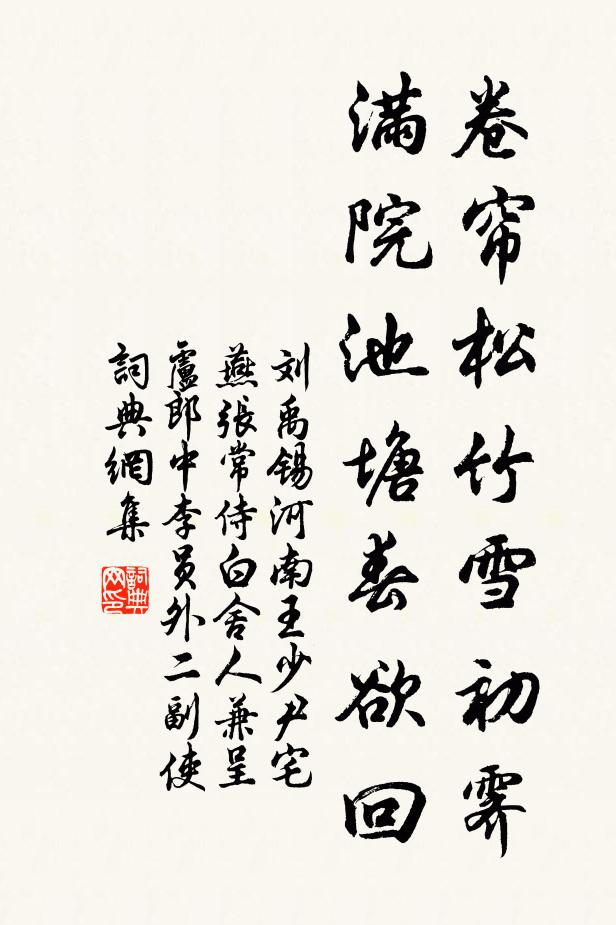 卷帘松竹雪初霁
满院池塘春欲回
刘禹锡河南王少尹宅
燕張常侍白舍人兼呈
盧郎中李員外二副使
詞典網集
詞典